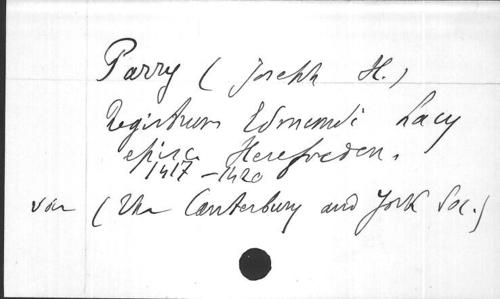 Parry (Joseph H.)
Registrum Edmundi Lacy
episc Herefreden.
1417-1420
(The Canterbury and York Soc.)